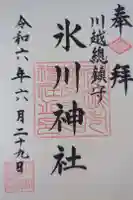 奉拝
川越總鎮守
氷川神社
令和六年六月二十九日